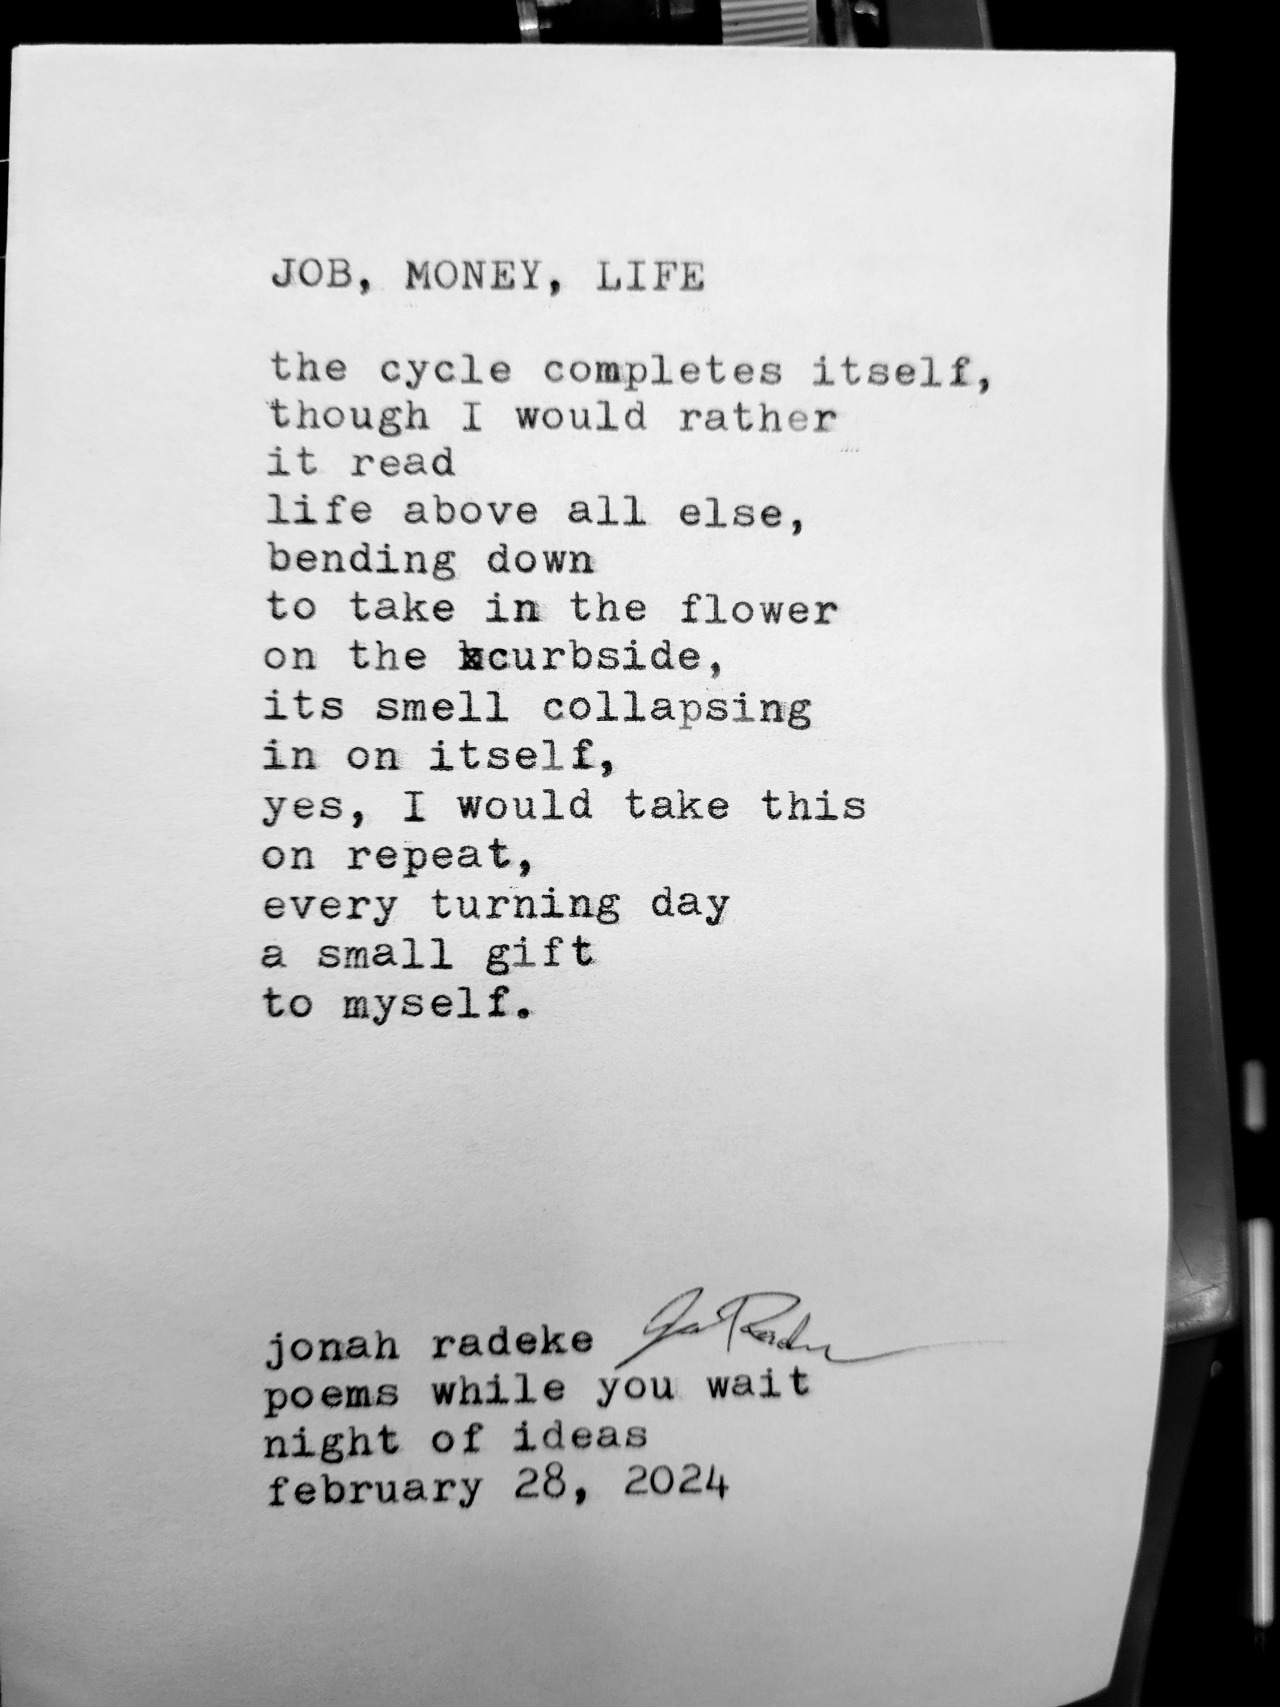 JOB, MONEY, LIFE
the cycle completes itself,
though I would rather
it read
life above all else,
bending down
to take in the flower
on the curbside,
its smell collapsing
in on itself,
yes, I would take this
on repeat,
every turning day
a small gift
to myself.
jonah radeke
poems while you wait
night of ideas
february 28, 2024